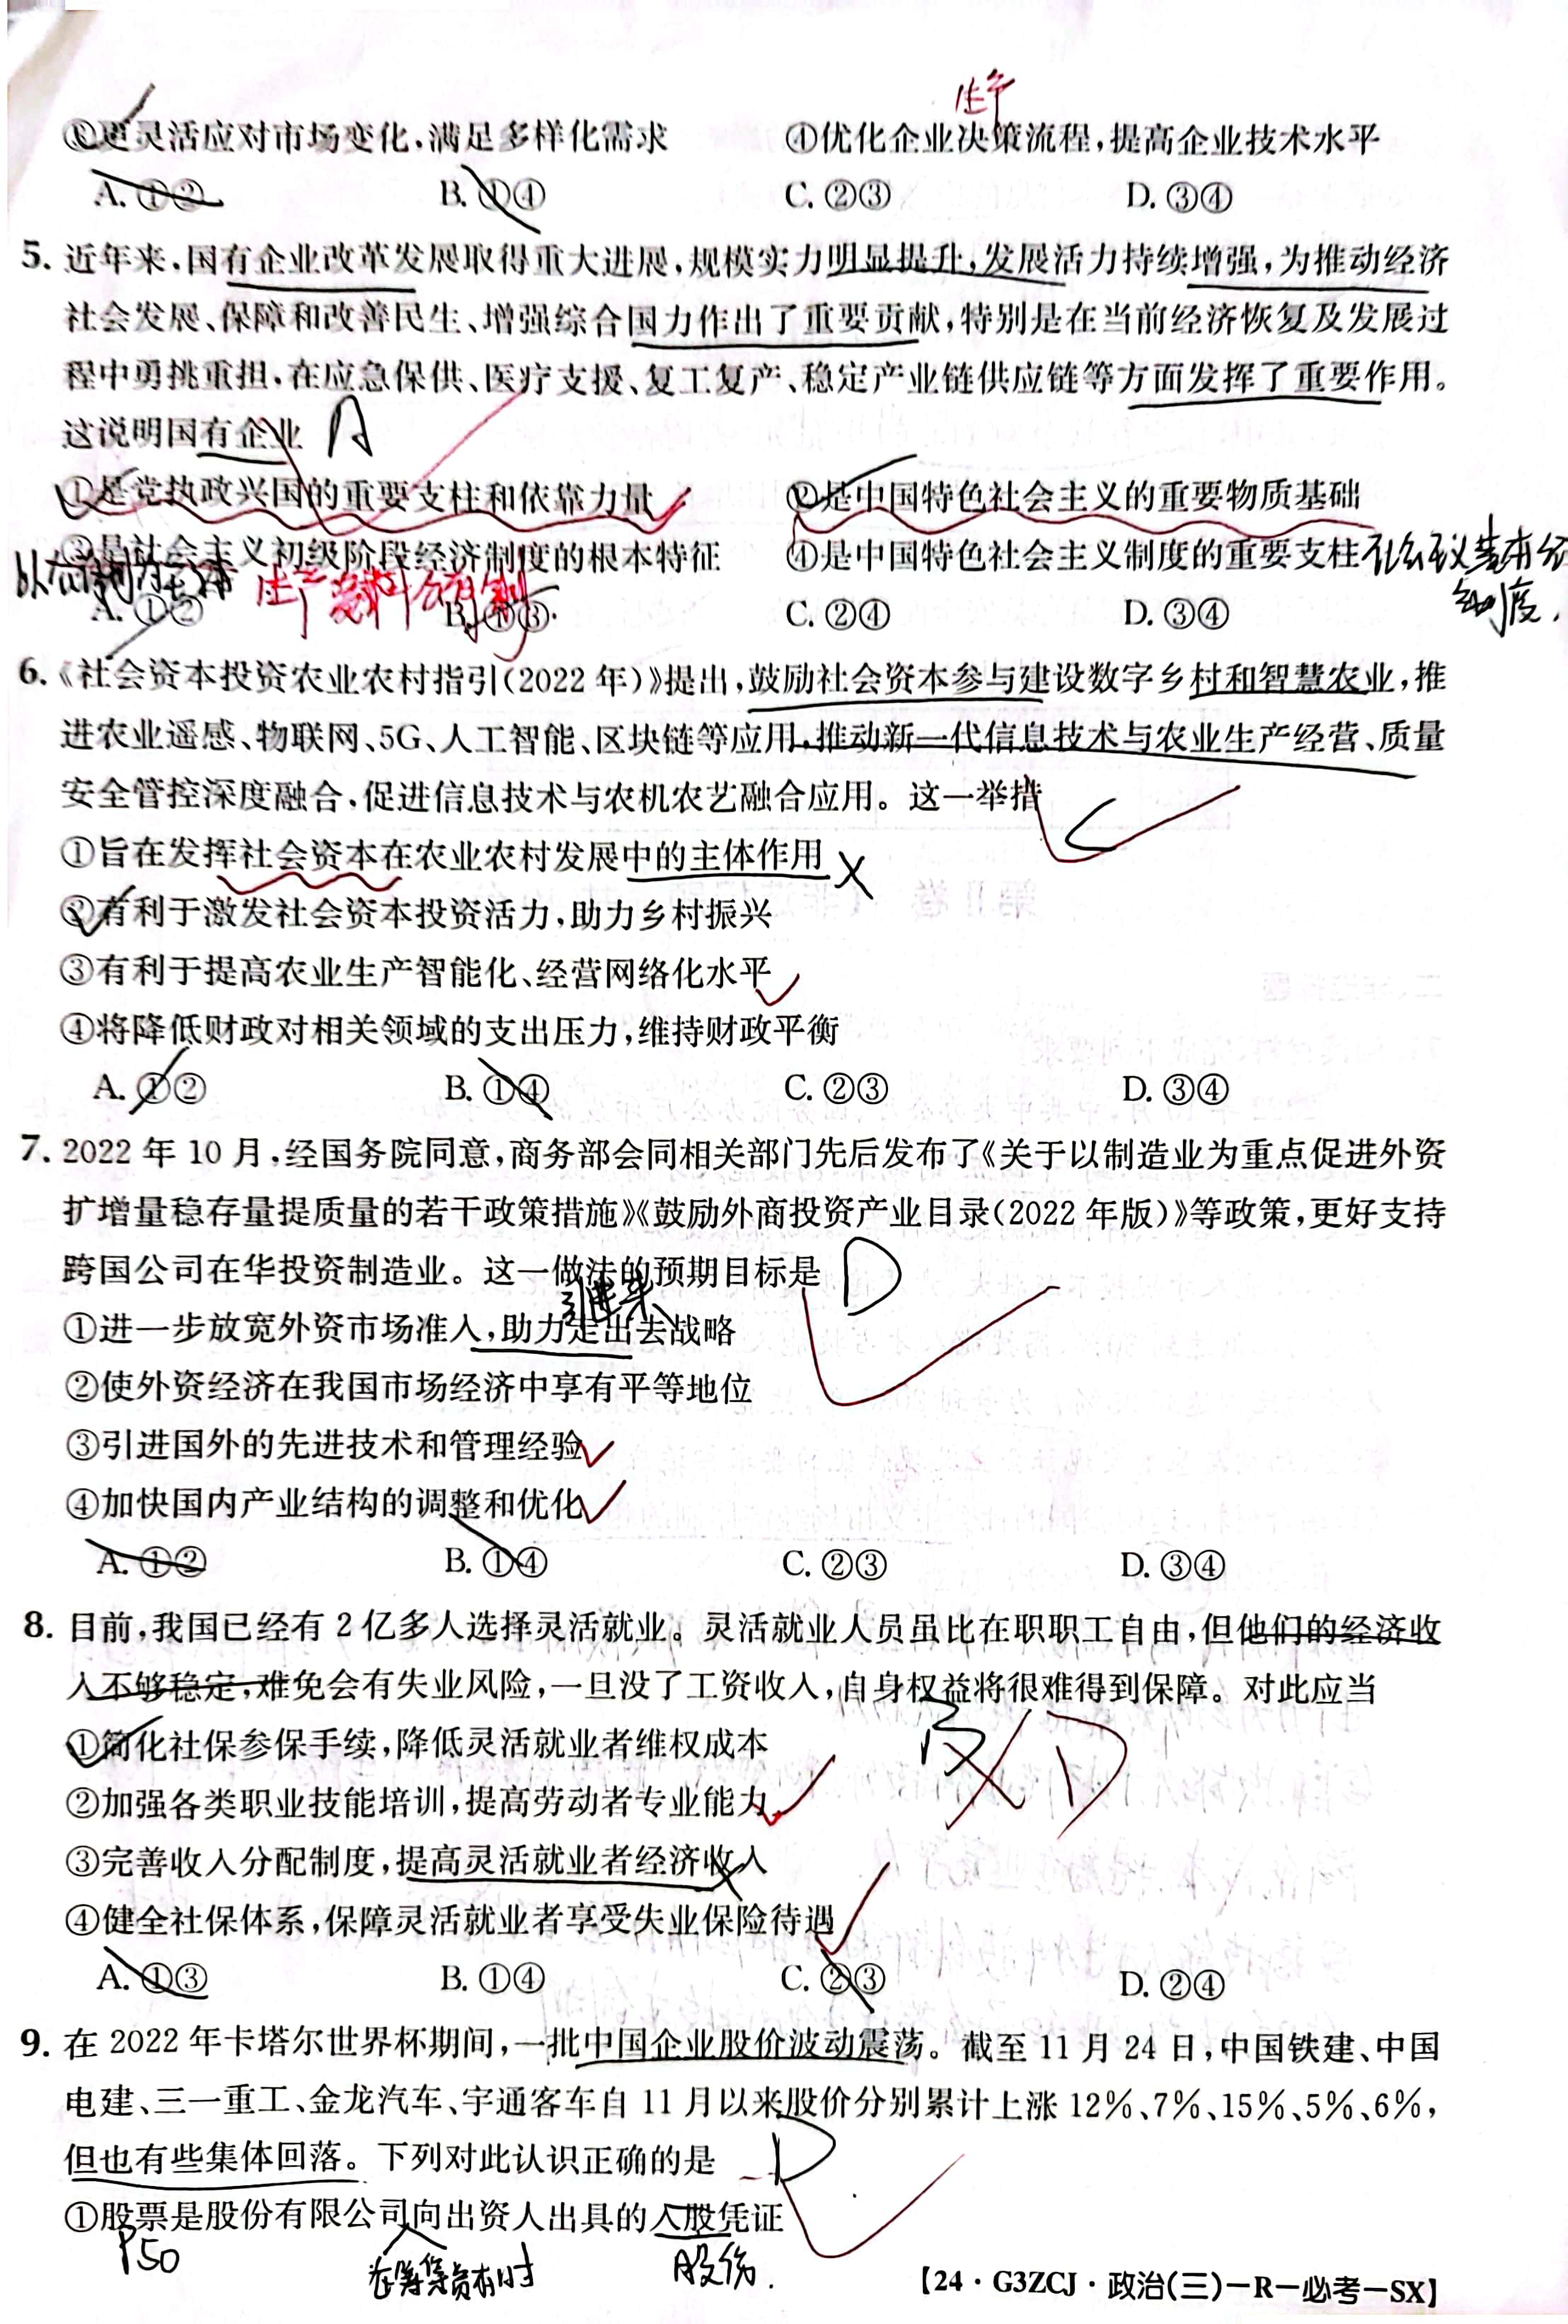 生产
③更灵活应对市场变化,满足多样化需求 ④优化企业决策流程,提高企业技术水平
A. ①② B. ①④ C. ②③ D. ③④
5. 近年来,国有企业改革发展取得重大进展,规模实力明显提升,发展活力持续增强,为推动经济
社会发展、保障和改善民生、增强综合国力作出了重要贡献,特别是在当前经济恢复及发展过
程中勇挑重担,在应急保供、医疗支援、复工复产、稳定产业链供应链等方面发挥了重要作用。
这说明国有企业 A
①是党执政兴国的重要支柱和依靠力量 ②是中国特色社会主义的重要物质基础
③是社会主义初级阶段经济制度的根本特征 ④是中国特色社会主义制度的重要支柱
以公有制为主体 生产资料公有制
制度.
A. ①② B. ①③ C. ②④ D. ③④
6. 《社会资本投资农业农村指引(2022 年)》提出,鼓励社会资本参与建设数字乡村和智慧农业,推
进农业遥感、物联网、5G、人工智能、区块链等应用,推动新一代信息技术与农业生产经营、质量
安全管控深度融合,促进信息技术与农机农艺融合应用。这一举措 C
①旨在发挥社会资本在农业农村发展中的主体作用
②有利于激发社会资本投资活力,助力乡村振兴
③有利于提高农业生产智能化、经营网络化水平
④将降低财政对相关领域的支出压力,维持财政平衡
A. ①② B. ①④ C. ②③ D. ③④
7. 2022 年 10 月,经国务院同意,商务部会同相关部门先后发布了《关于以制造业为重点促进外资
扩增量稳存量提质量的若干政策措施》《鼓励外商投资产业目录(2022 年版)》等政策,更好支持
跨国公司在华投资制造业。这一做法的预期目标是 D
引进来
①进一步放宽外资市场准入,助力走出去战略
②使外资经济在我国市场经济中享有平等地位
③引进国外的先进技术和管理经验
④加快国内产业结构的调整和优化
A. ①② B. ①④ C. ②③ D. ③④
8. 目前,我国已经有 2 亿多人选择灵活就业。灵活就业人员虽比在职职工自由,但他们的经济收
入不够稳定,难免会有失业风险,一旦没了工资收入,自身权益将很难得到保障。对此应当
B D
①简化社保参保手续,降低灵活就业者维权成本
②加强各类职业技能培训,提高劳动者专业能力
③完善收入分配制度,提高灵活就业者经济收入
④健全社保体系,保障灵活就业者享受失业保险待遇
A. ①③ B. ①④ C. ②③ D. ②④
9. 在 2022 年卡塔尔世界杯期间,一批中国企业股价波动震荡。截至 11 月 24 日,中国铁建、中国
电建、三一重工、金龙汽车、宇通客车自 11 月以来股价分别累计上涨 12%、7%、15%、5%、6%,
但也有些集体回落。下列对此认识正确的是 D
①股票是股份有限公司向出资人出具的入股凭证
P50 在筹集资本时 股份.
【24·G3ZCJ·政治(三)-R-必考-SX】